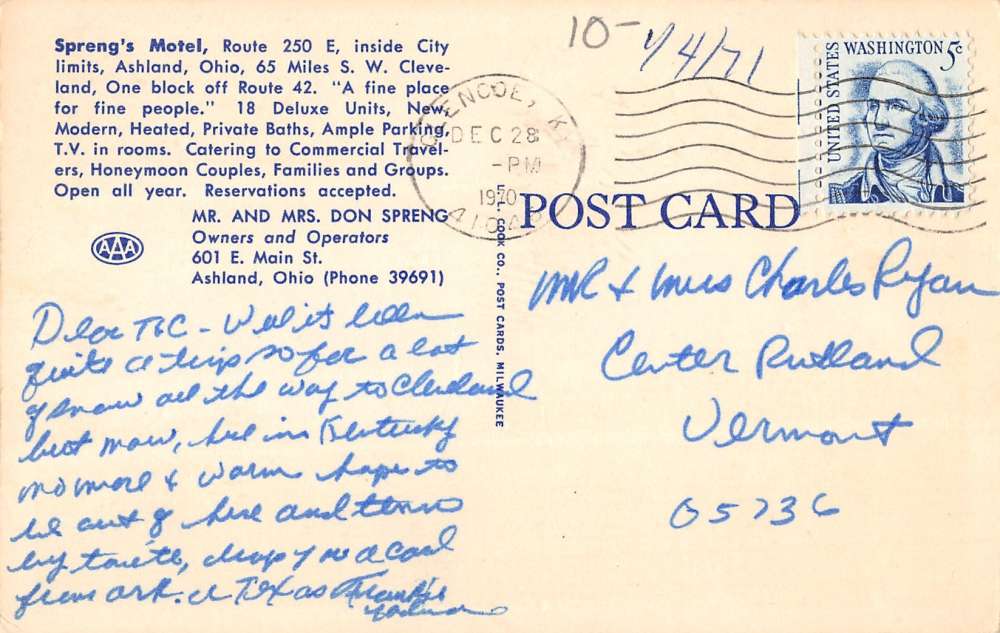 10-
1/4/71
Spreng's Motel, Route 250 E, inside City
limits, Ashland, Ohio, 65 Miles S. W. Cleve-
land, One block off Route 42. "A fine place
for fine people." 18 Deluxe Units, New,
Modern, Heated, Private Baths, Ample Parking,
T.V. in rooms. Catering to Commercial Travel-
ers, Honeymoon Couples, Families and Groups.
Open all year. Reservations accepted.
MR. AND MRS. DON SPRENG
Owners and Operators
601 E. Main St.
Ashland, Ohio (Phone 39691)
AAA
GLENCOE, KY
DEC 28
-PM
1970
41046
UNITED STATES
WASHINGTON 5c
POST CARD
E. L. COOK CO., POST CARDS, MILWAUKEE
Dear T&C - Well its been
quite a trip so far a lot
of snow all the way to Cleveland
but now, here in Kentucky
no more & warm hope to
be out of here and
by tonite, drop you a card
from ark. or Texas Frankie
Mr & Mrs Charles Ryan
Center Rutland
Vermont
05736